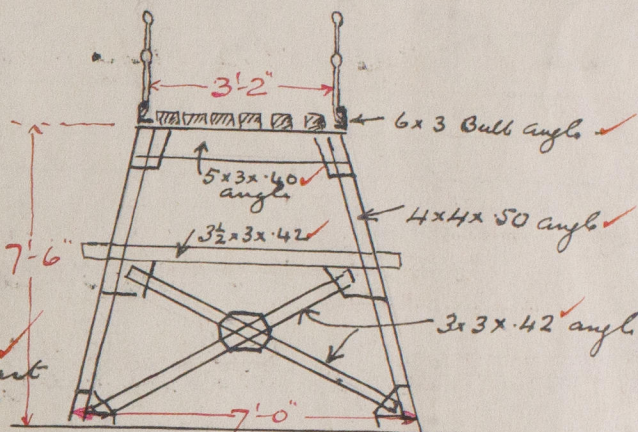 3'-2"
6 x 3 Bulb angle
5 x 3 x .40
angle
4 x 4 x .50 angle
3½ x 3 x .42
7'-6"
3 x 3 x .42 angle
7'-0"